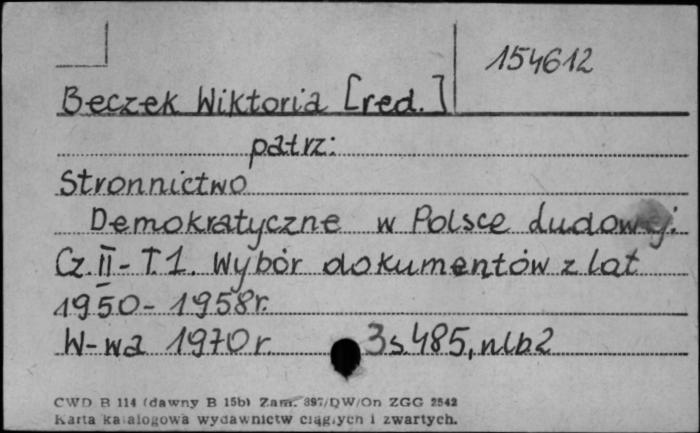 154612
Beczek Wiktoria [red.]
patrz:
Stronnictwo
Demokratyczne w Polsce Ludowej.
Cz. II - T.1. Wybór dokumentów z lat
1950 - 1958r.
W-wa 1970 r. 3s.485, nlb2
CWD B 114 (dawny B 15b) Zam. 897/DW/On ZGG 2542
Karta katalogowa wydawnictw ciągłych i zwartych.